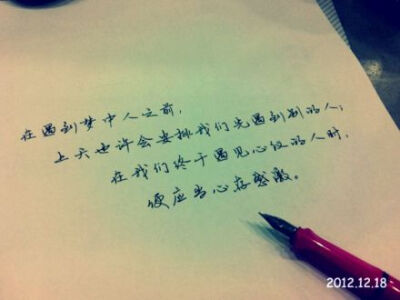 在遇到梦中人之前，
上天也许会安排我们先遇到别的人；
在我们终于遇见心仪的人时，
便应当心存感激。
2012.12.18